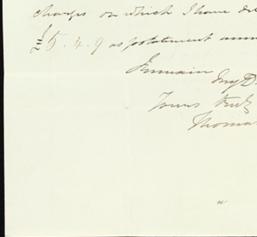 charges on which I have
£5.4.9 as p statement
I remain
My D
Yours truly
Thomas